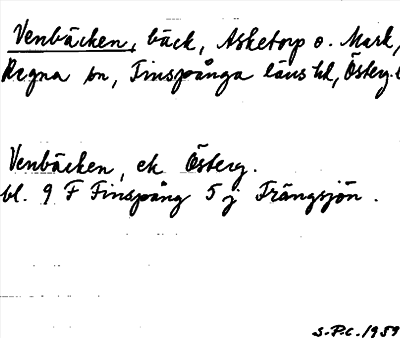 Venbäcken, bäck, Asketorp o. Mark,
Regna sn, Finspånga läns hd, Österg.
Venbäcken, ek Österg.
bl. 9 F Finspång 5 j Trängsjön.
S.P.C. 1959